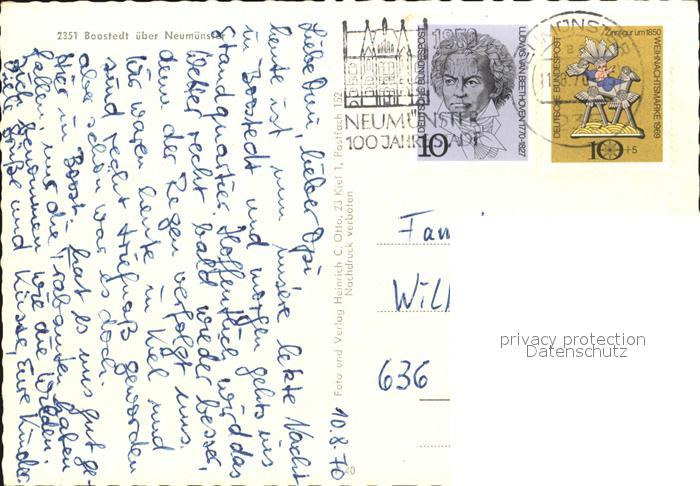 2351 Boostedt über Neumünster
Liebe Omi, lieber Opi!
heute ist nun unsere letzte Nacht
in Boostedt und morgen gehts ins
Stadtquartier. Hoffentlich wird das
Wetter recht bald wieder besser,
denn der Regen verfolgt uns.
Wir waren heute in Kiel und
sind recht triefnaß geworden
aber schön war es doch.
Hier in Boost. hat es uns gut ge-
fallen nur die Trabanten haben
sich benommen wie die Wilden.
Viele Grüße und Küsse, Eure Kinder
10.8.70
Foto und Verlag Heinrich C. Otto, 23 Kiel 1, Postfach 152
Nachdruck verboten
NEUMÜNSTER
100 JAHRE STADT
DEUTSCHE BUNDESPOST
LUDWIG VAN BEETHOVEN 1770-1827
10
DEUTSCHE BUNDESPOST
Zinnfigur um 1850
WEIHNACHTSMARKE 1969
10+5
Fam
Will
636
privacy protection
Datenschutz